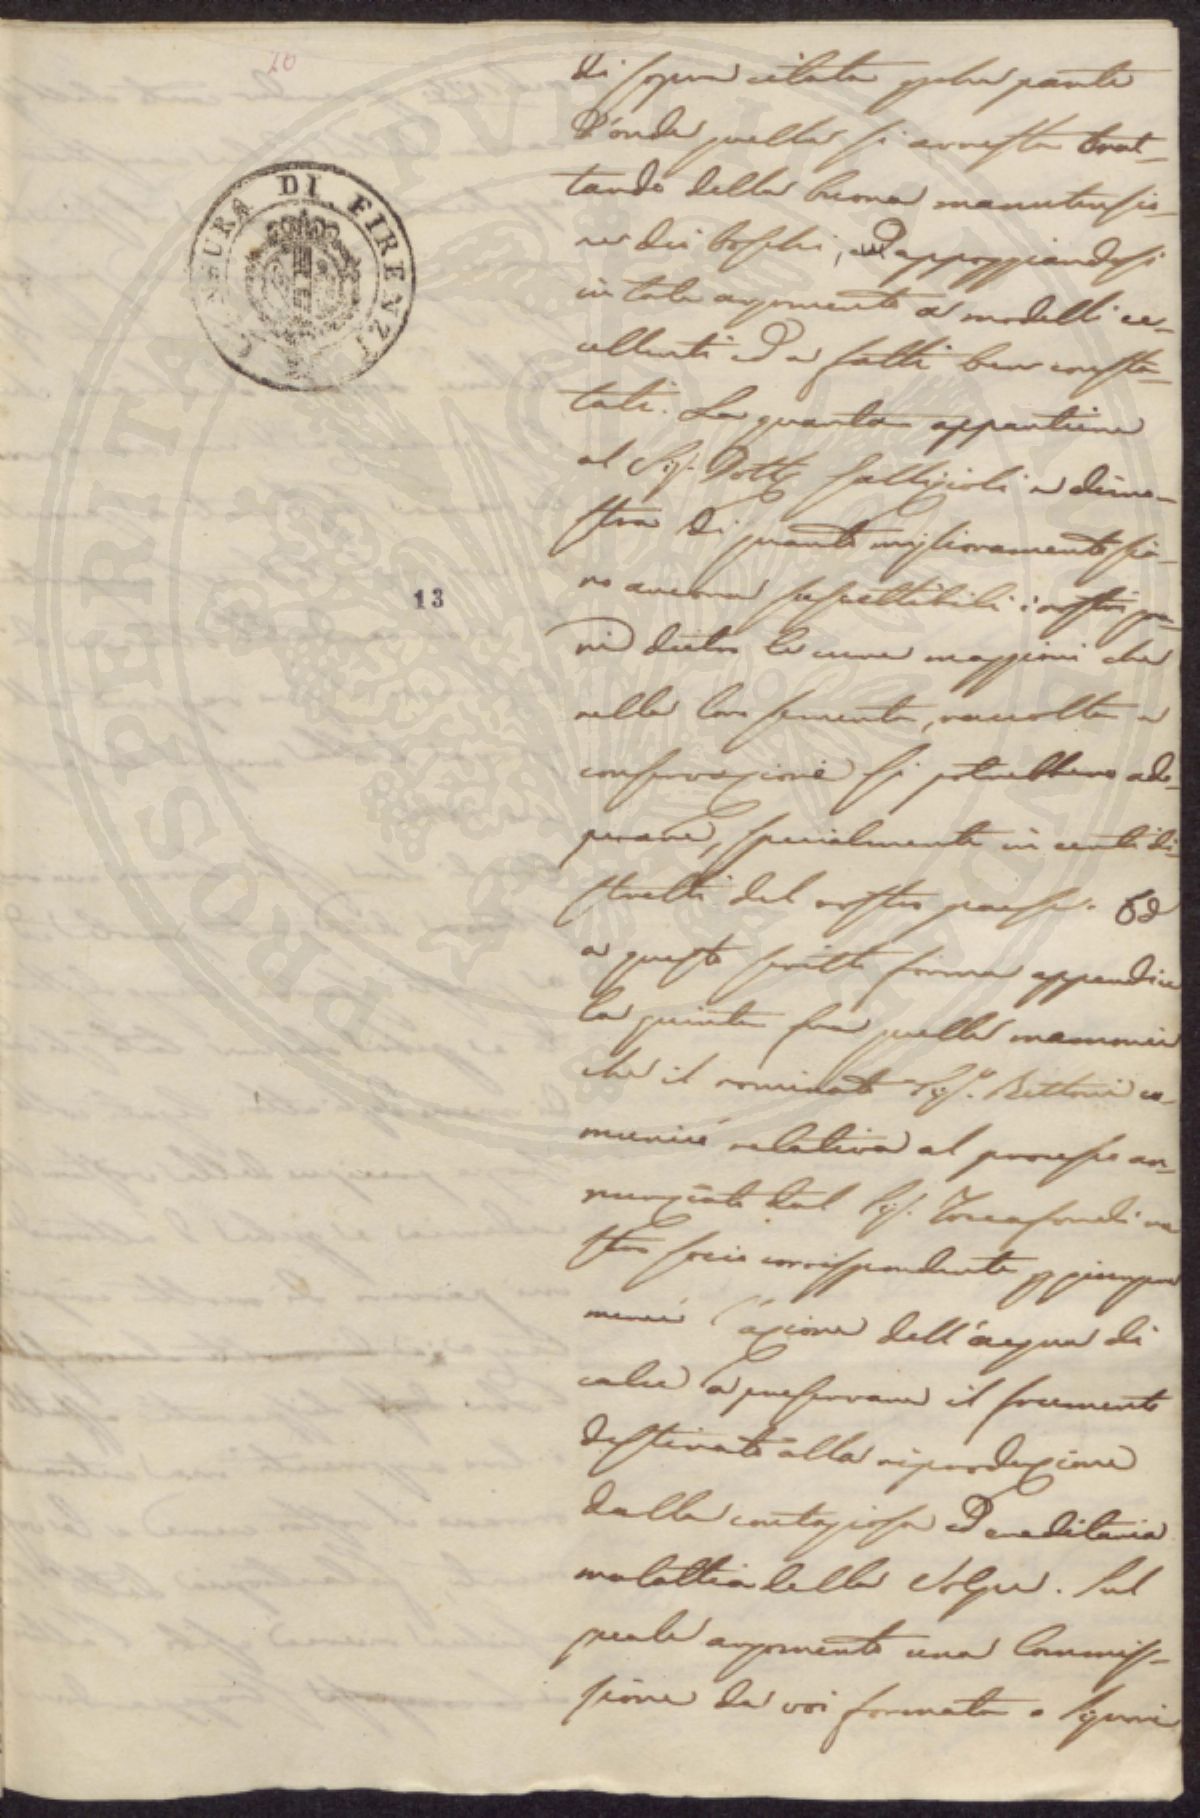 20
di sopra citata nella parte
d'onde quella si arresta trat-
tando della buona manutensio-
ne dei boschi, ed appoggiandosi
in tale argomento a modelli ec-
cellenti ed a fatti ben consta-
tati. La quarta appartiene
al Sig. Dott. Salligioli e dimo-
stra di quanto miglioramento sia-
no ancora suscettibili i nostri
dietro le cure maggiori che
nella loro sementa, raccolta e
conservazione si potrebbero ado-
perare, specialmente in certi di-
stretti del nostro paese. Ed
a questo scritto forma appendice
la quinta fra quelle memorie
che il nominato Sig. Bettoni co-
municò relativa al processo an-
nunziato dal Sig. Toccafondi no
stro socio corrispondente
l'azione dell'acqua di
calce a preservare il frumento
destinato alla riproduzione
dalla contagiosa ed ereditaria
malattia della Volpe. Sul
quale argomento una Commis-
sione da voi formata o Signori
13
DI FIRENZE
PROSPERITATI PUBLICAE AUGENDAE